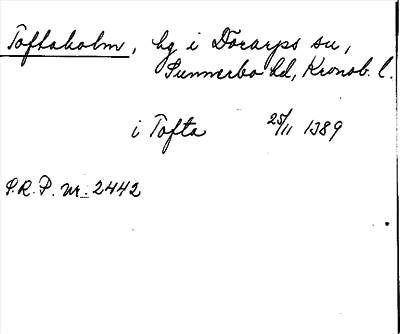 Toftaholm, hg i Dörarps sn,
Sunnerbo hd, Kronob. l.
i Tofta 25/11 1389
S.R.P. nr. 2442